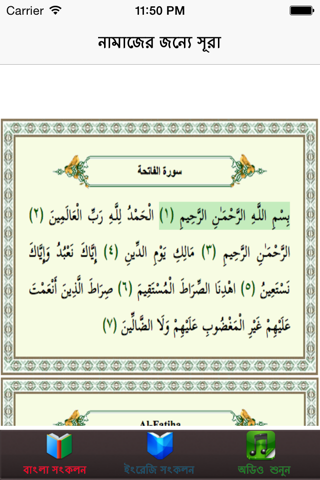 Carrier 11:50 PM
নামাজের জন্যে সূরা
سورة الفاتحة
بِسْمِ اللَّهِ الرَّحْمَٰنِ الرَّحِيمِ (١) الْحَمْدُ لِلَّهِ رَبِّ الْعَالَمِينَ (٢)
الرَّحْمَٰنِ الرَّحِيمِ (٣) مَالِكِ يَوْمِ الدِّينِ (٤) إِيَّاكَ نَعْبُدُ وَإِيَّاكَ
نَسْتَعِينُ (٥) اهْدِنَا الصِّرَاطَ الْمُسْتَقِيمَ (٦) صِرَاطَ الَّذِينَ أَنْعَمْتَ
عَلَيْهِمْ غَيْرِ الْمَغْضُوبِ عَلَيْهِمْ وَلَا الضَّالِّينَ (٧)
Al-Fatiha
বাংলা সংকলন ইংরেজি সংকলন অডিও শুনুন